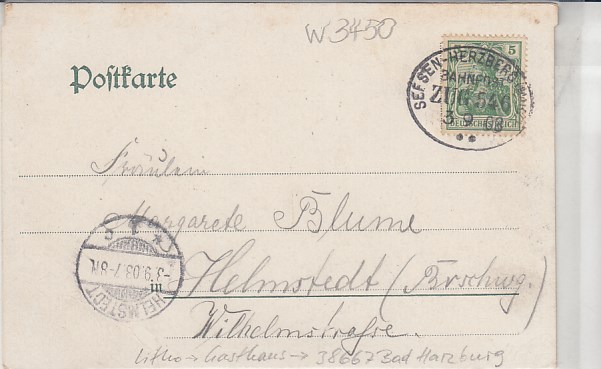 W 3450
Postkarte
5
SEESEN-HERZBERG
BAHNPOST
ZUG 546
3 9 03
DEUTSCHES REICH
Fräulein
Margarete Blume
in Helmstedt (Brschwg.)
Wilhelmstrasse.
HELMSTEDT
-3.9.03.7-8N.
Litho → Gasthaus → 38667 Bad Harzburg